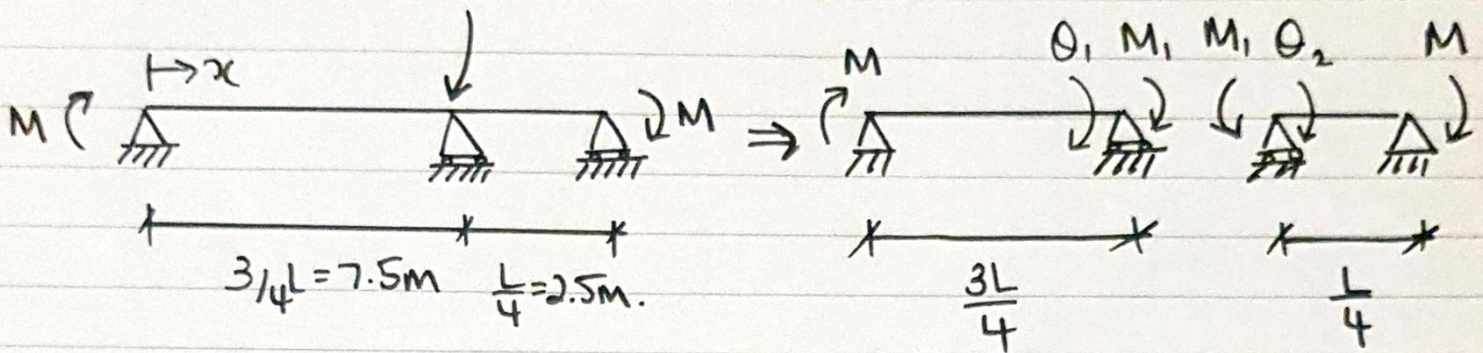 ↦ x
M
M
⇒
M
θ₁ M₁
M₁ θ₂
M
3/4L = 7.5m
L/4 = 2.5m.
3L/4
L/4